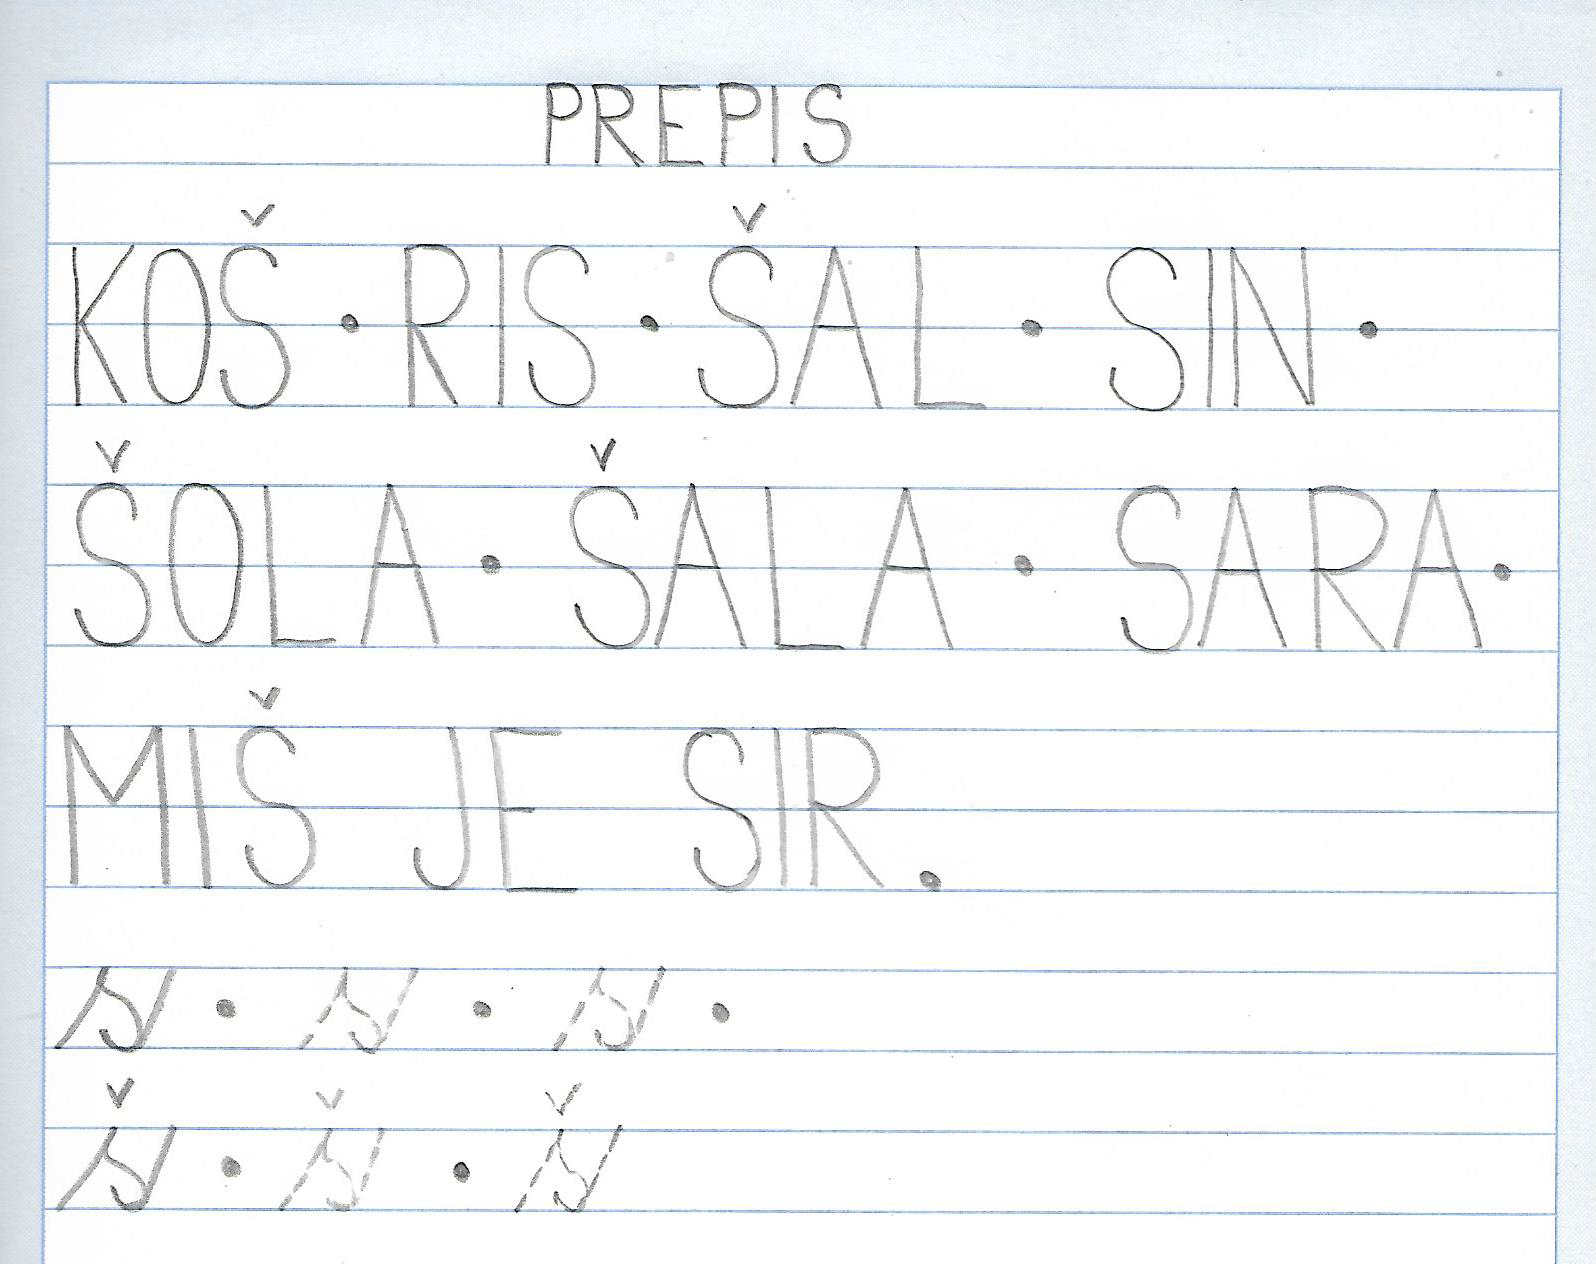 PREPIS
KOŠ • RIS • ŠAL • SIN •
ŠOLA • ŠALA • SARA •
MIŠ JE SIR.
s • s • s •
š • š • š